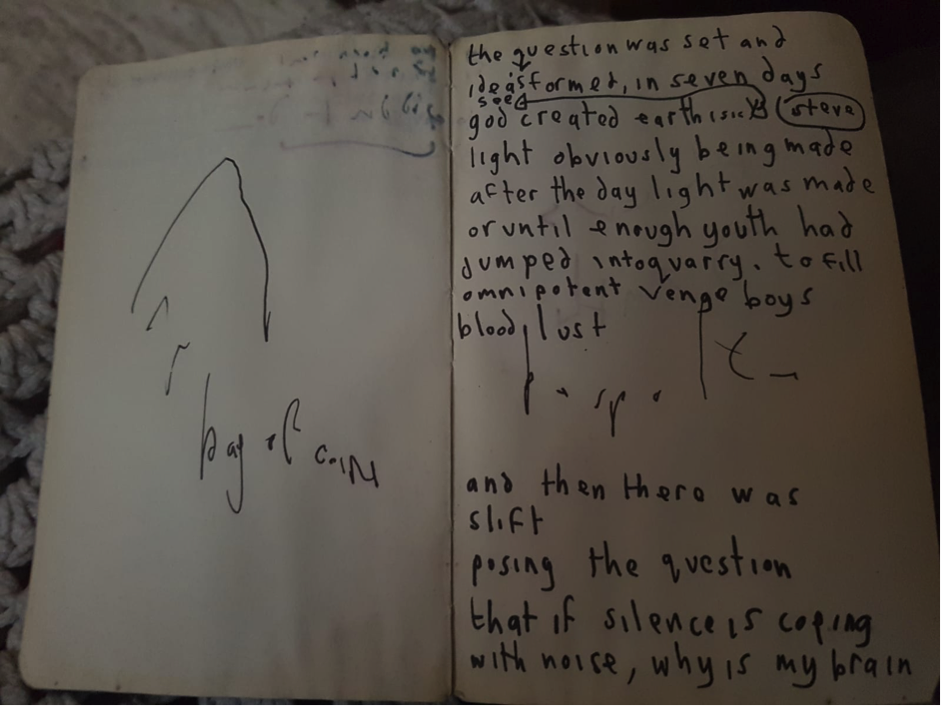 bag of coin
the question was set and
ideas formed, in seven days
see
god created earth (sic) (steve)
light obviously being made
after the day light was made
or until enough youth had
jumped into quarry. to fill
omnipotent venge boys
blood, lust
and then there was
slift
posing the question
that if silence is coping
with noise, why is my brain